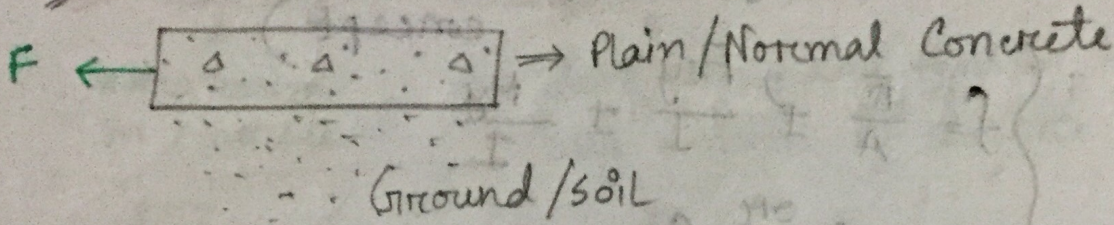 F ← ⇒ Plain/Normal Concrete
?
Ground/soil